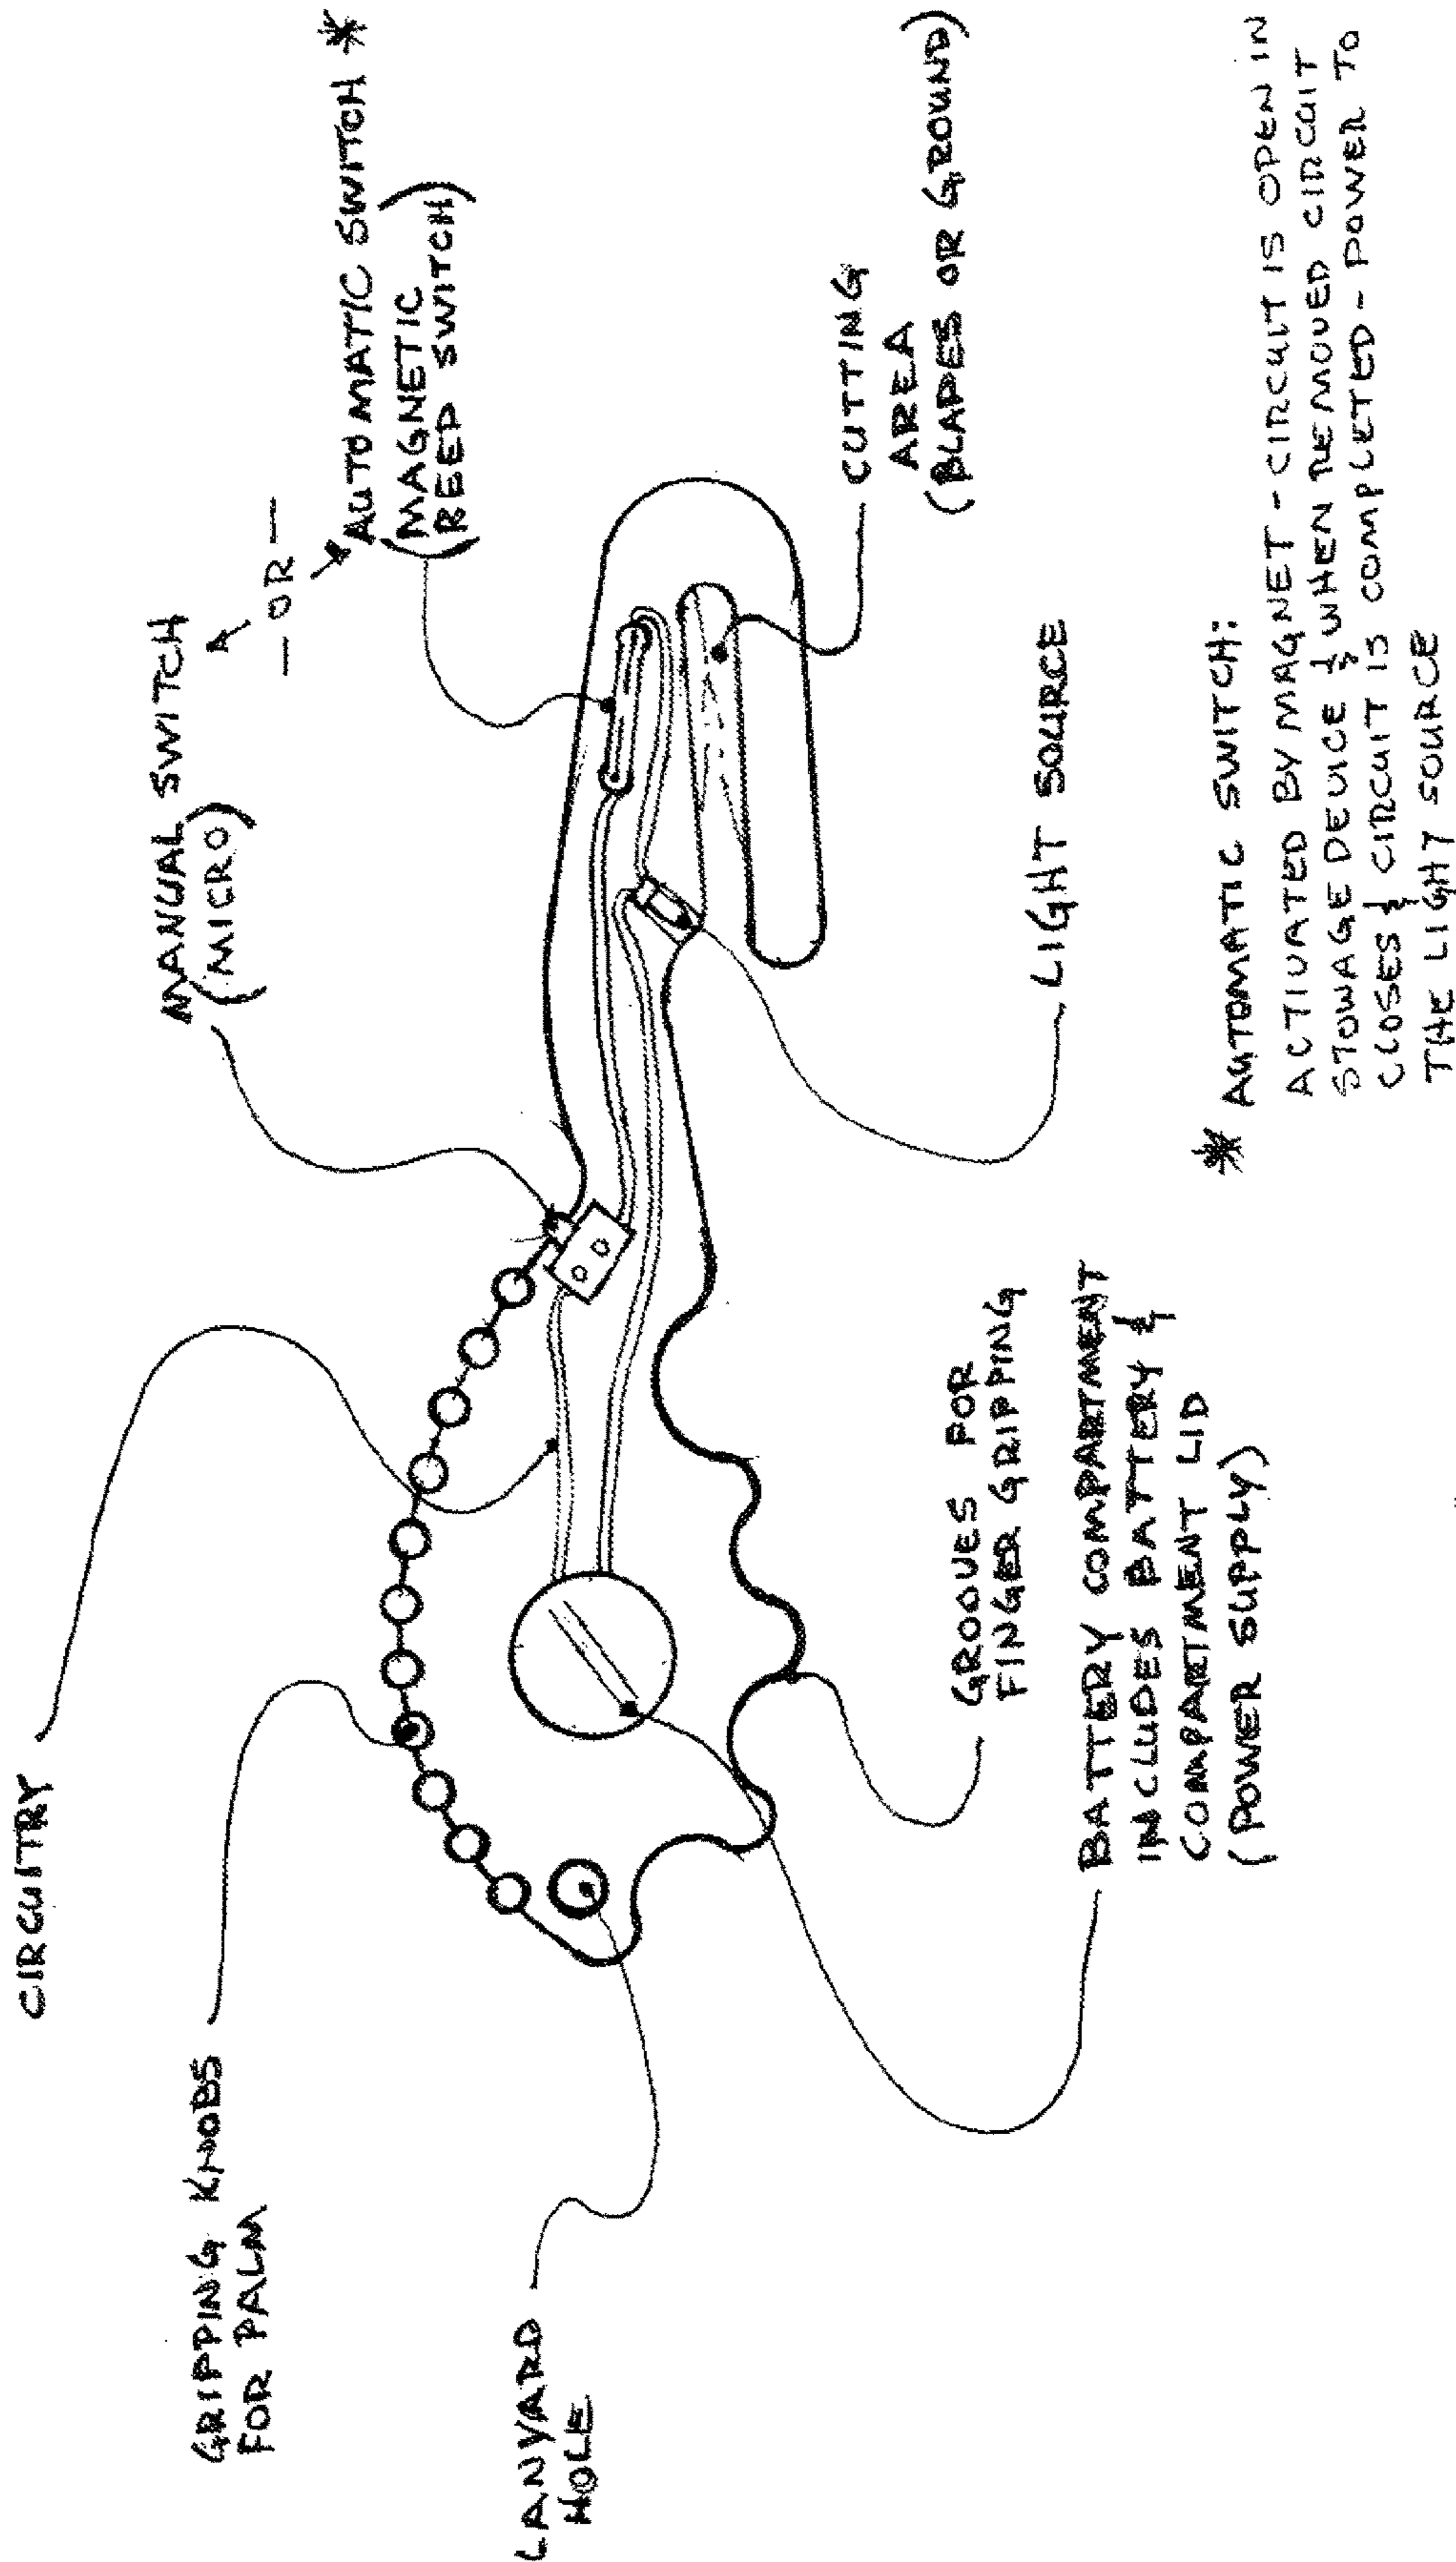 CIRCUITRY
GRIPPING KNOBS
FOR PALM
LANYARD
HOLE
MANUAL SWITCH
(MICRO)
— OR —
AUTOMATIC SWITCH *
(MAGNETIC
REED SWITCH)
CUTTING
AREA
(BLADES OR GROUND)
LIGHT SOURCE
GROOVES FOR
FINGER GRIPPING
BATTERY COMPARTMENT
INCLUDES BATTERY &
COMPARTMENT LID
(POWER SUPPLY)
* AUTOMATIC SWITCH:
ACTIVATED BY MAGNET - CIRCUIT IS OPEN IN
STOWAGE DEVICE & WHEN REMOVED CIRCUIT
CLOSES & CIRCUIT IS COMPLETED - POWER TO
THE LIGHT SOURCE